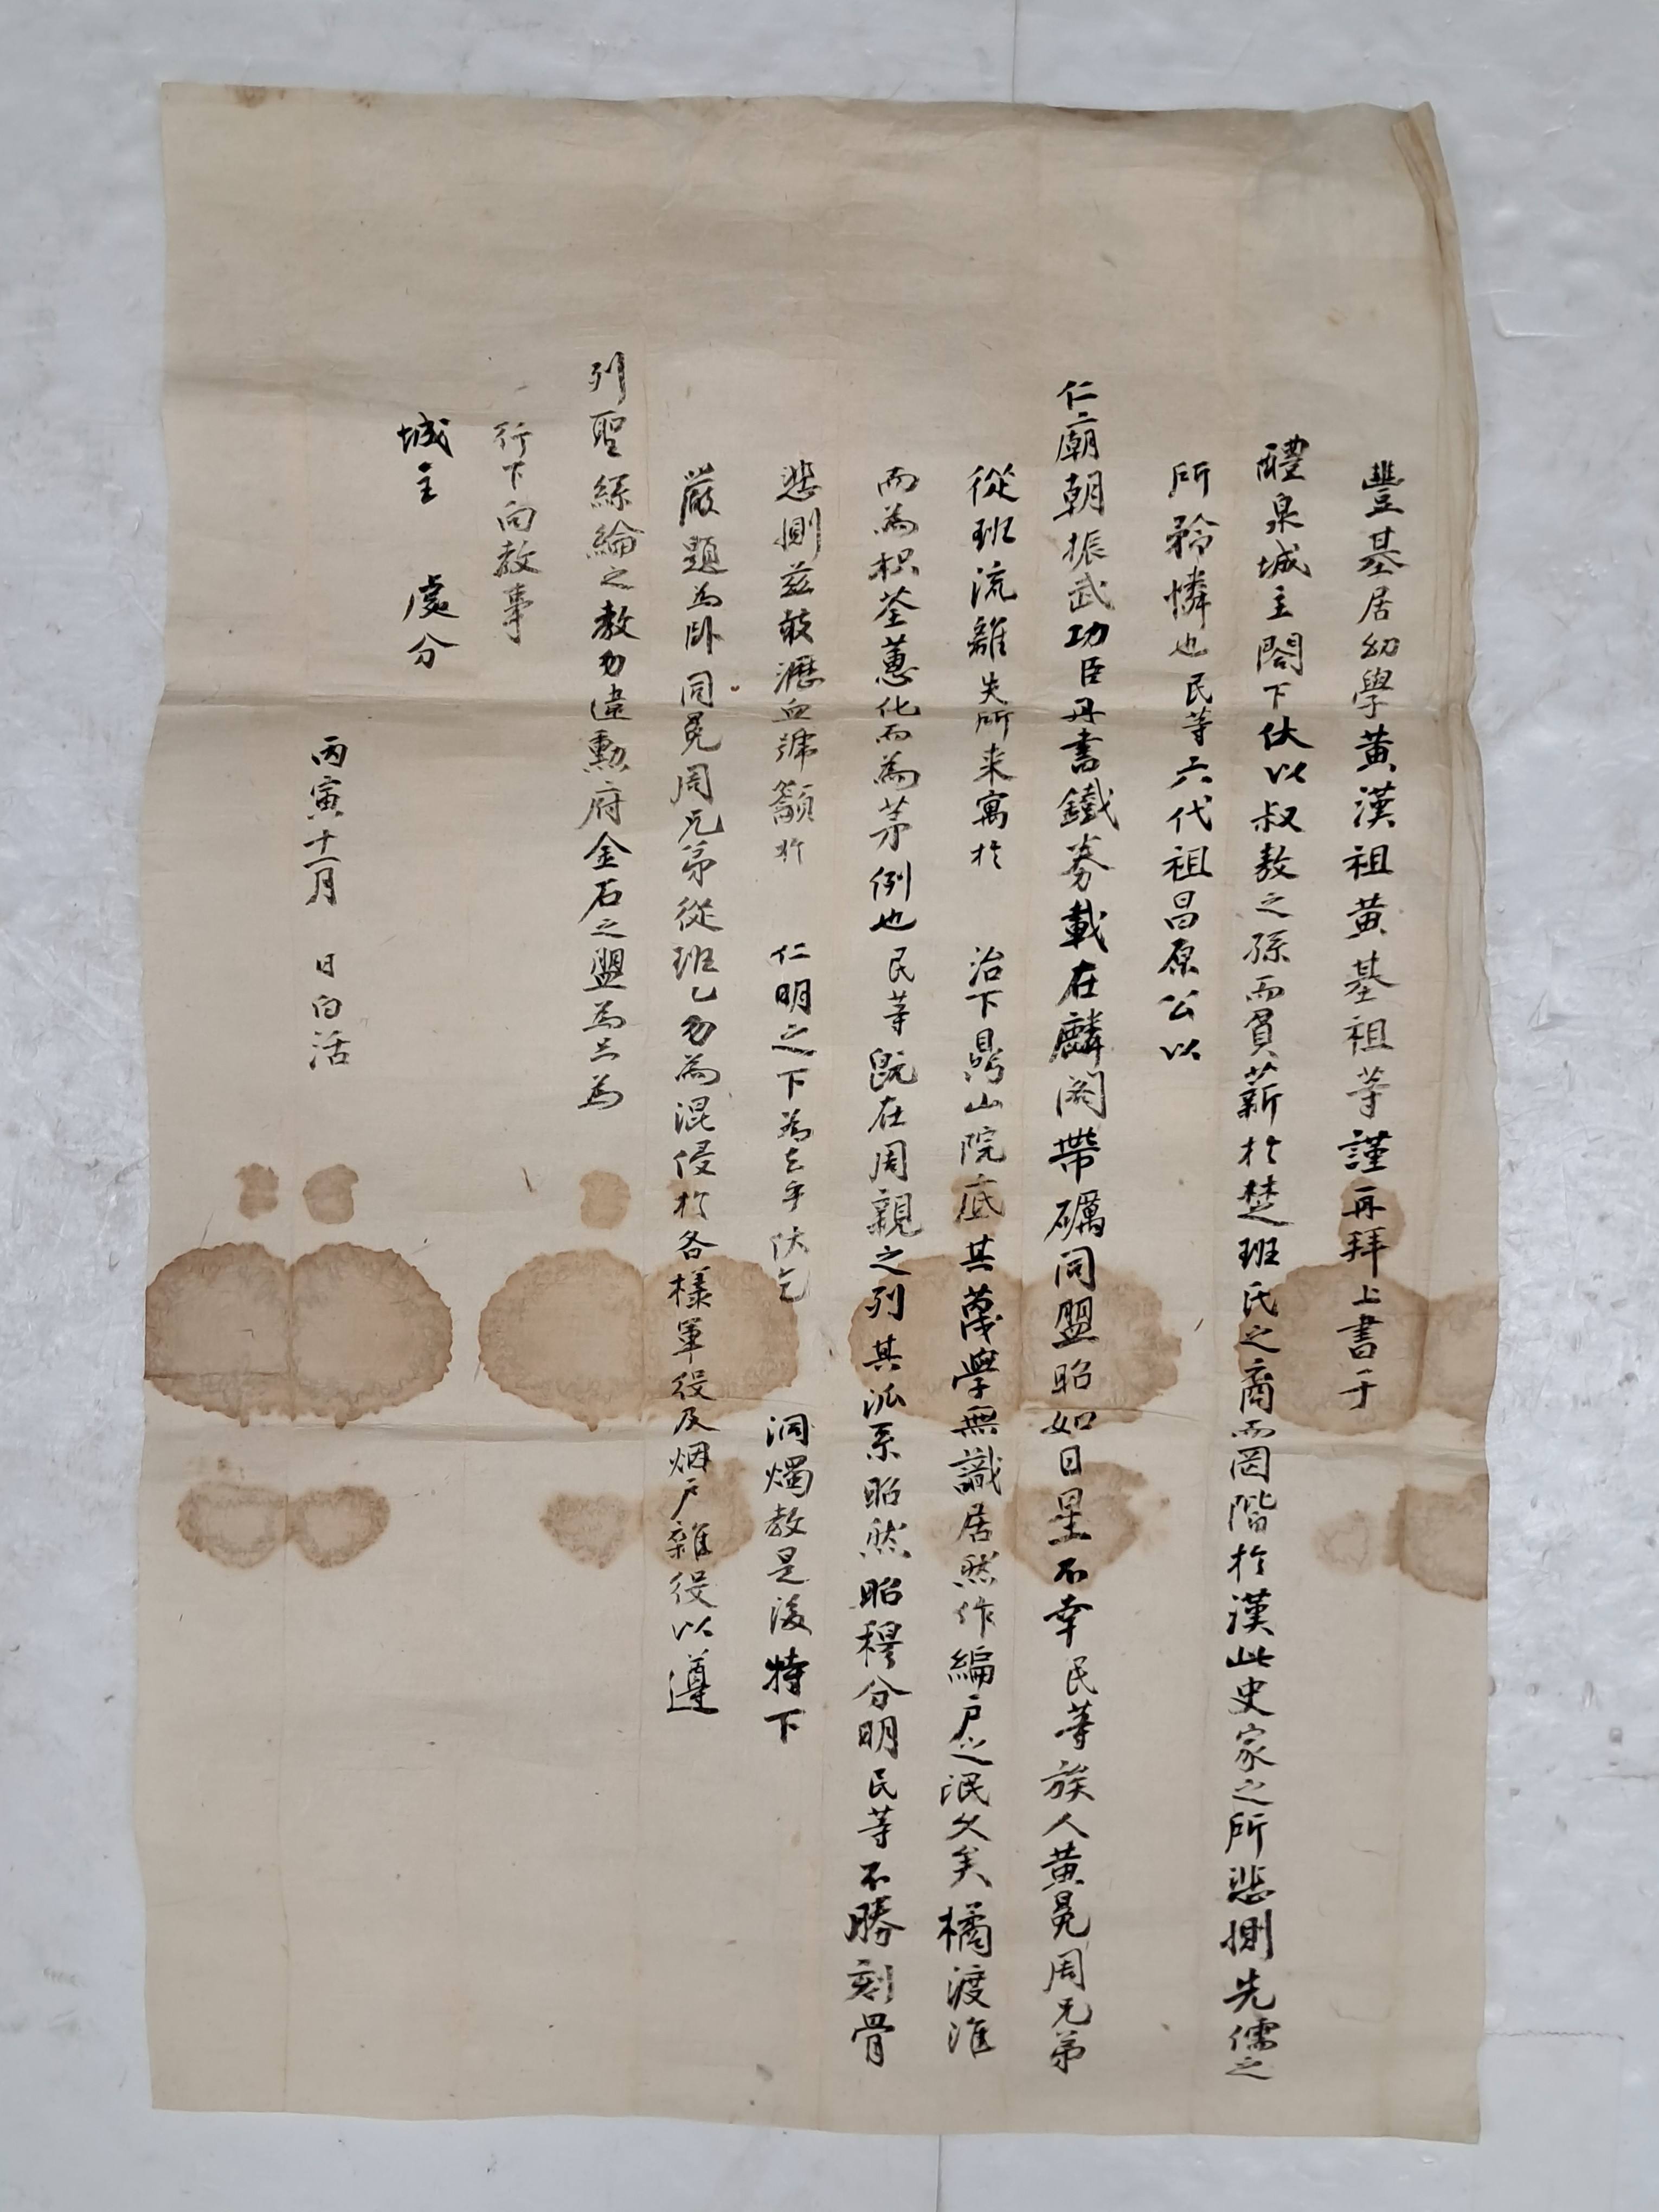 豊基居幼學黃漢祖黃基祖等謹再拜上書于
醴泉城主閤下伏以叔敖之孫而負薪於楚班氏之裔而因階於漢此史家之所悲惻先儒之
所矜憐也民等六代祖昌原公以
仁廟朝振武功臣丹書鐵券載在麟閣帶礪同盟昭如日星不幸民等族人黃冕周兄弟
從班流離失所来寓於 治下鼎山院底其蔑學無識居然作編戶之氓久矣橘渡淮
而為枳荃蕙化而為茅例也民等旣在周親之列其派系昭然昭穆分明民等不勝刻骨
悲惻玆敢瀝血號籲於 仁明之下為去乎伏乞 洞燭敎是後特下
嚴題為卧同冕周兄弟從班乙勿為混侵於各樣軍役及烟戶雜役以遵
列聖絲綸之敎勿違勳府金石之盟為只為
行下向敎事
城主 處分
丙寅十一月 日白活